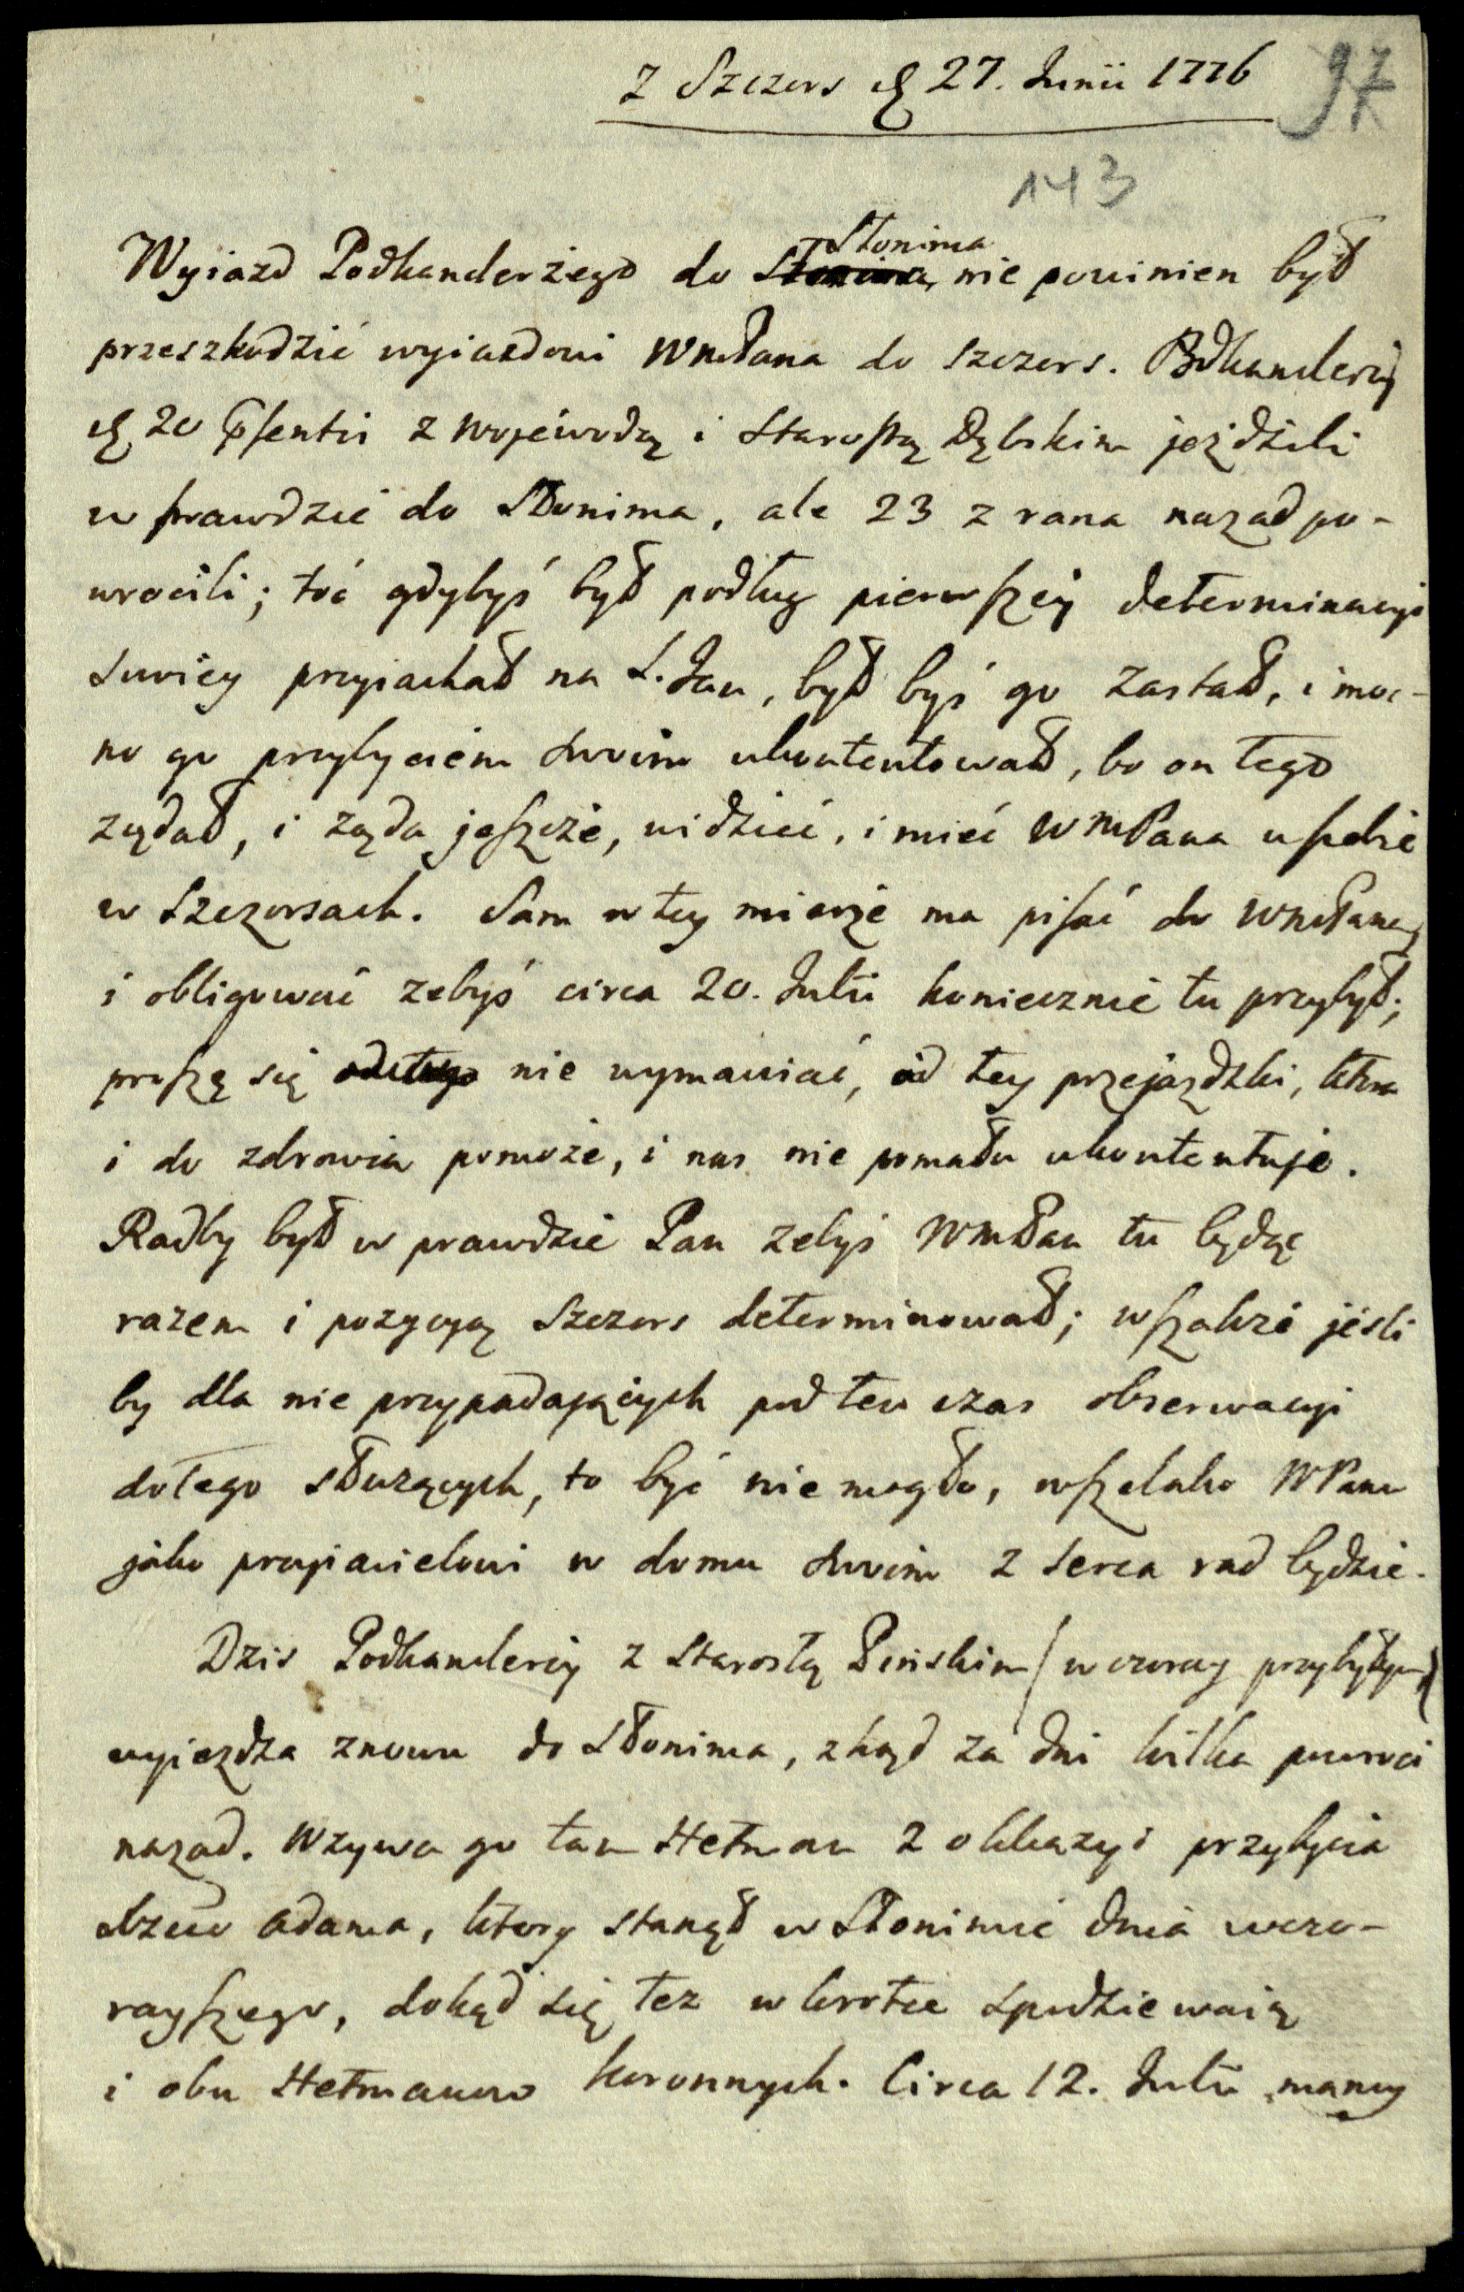 z Szczors d. 27. Junii 1776
97
143
Słonima
Wyiazd Podkanclerzego do Słonima, nie powinien był
przeszkodzić wyiazdowi WmPana do Szczors. Pdkanclerzy
d. 20 Psentis z Wojewodą i Starostą Dębskim jeździli
w prawdzie do Słonima, ale 23 z rana nazad po-
wrocili; toć gdybyś był podług pierwszey determinacyi
swoiey przyiachał na S. Jan, był byś go zastał, i moc-
no go przybyciem swoim ukontentował, bo on tego
ządał, i ząda jeszcze, widzieć, i mieć WmPana u siebie
w Szczorsach. Sam w tey mierze ma pisać do WmPana,
i obligować zebyś circa 20. Julii koniecznie tu przybył;
proszę się od tego nie wymawiać, od tey przejazdzki, ktora
i do zdrowia pomoze, i nas nie pomału ukontentuje.
Radby był w prawdzie Pan zebyś WmPan tu będąc
razem i pozycyą Szczors determinował; wszakze jeśli
by dla nie przypadających pod ten czas obserwacyi
do tego słuzących, to być nie mogło, wszelako WPanu
jako przyiacielowi w domu swoim z serca rad będzie.
Dzis Podkanclerzy z Starostą Pinskim (wczoray przybyłym)
wyiezdza znowu do Słonima, zkąd za dni kilka powroci
nazad. Wzywa go tam Hetman z okkazyi przybycia
Xcia Adama, ktory stanął w Słonimie dnia wczo-
rayszego, dokąd się tez wkrotce spodziewaią
i obu Hetmanow koronnych. Circa 12. Julii mamy